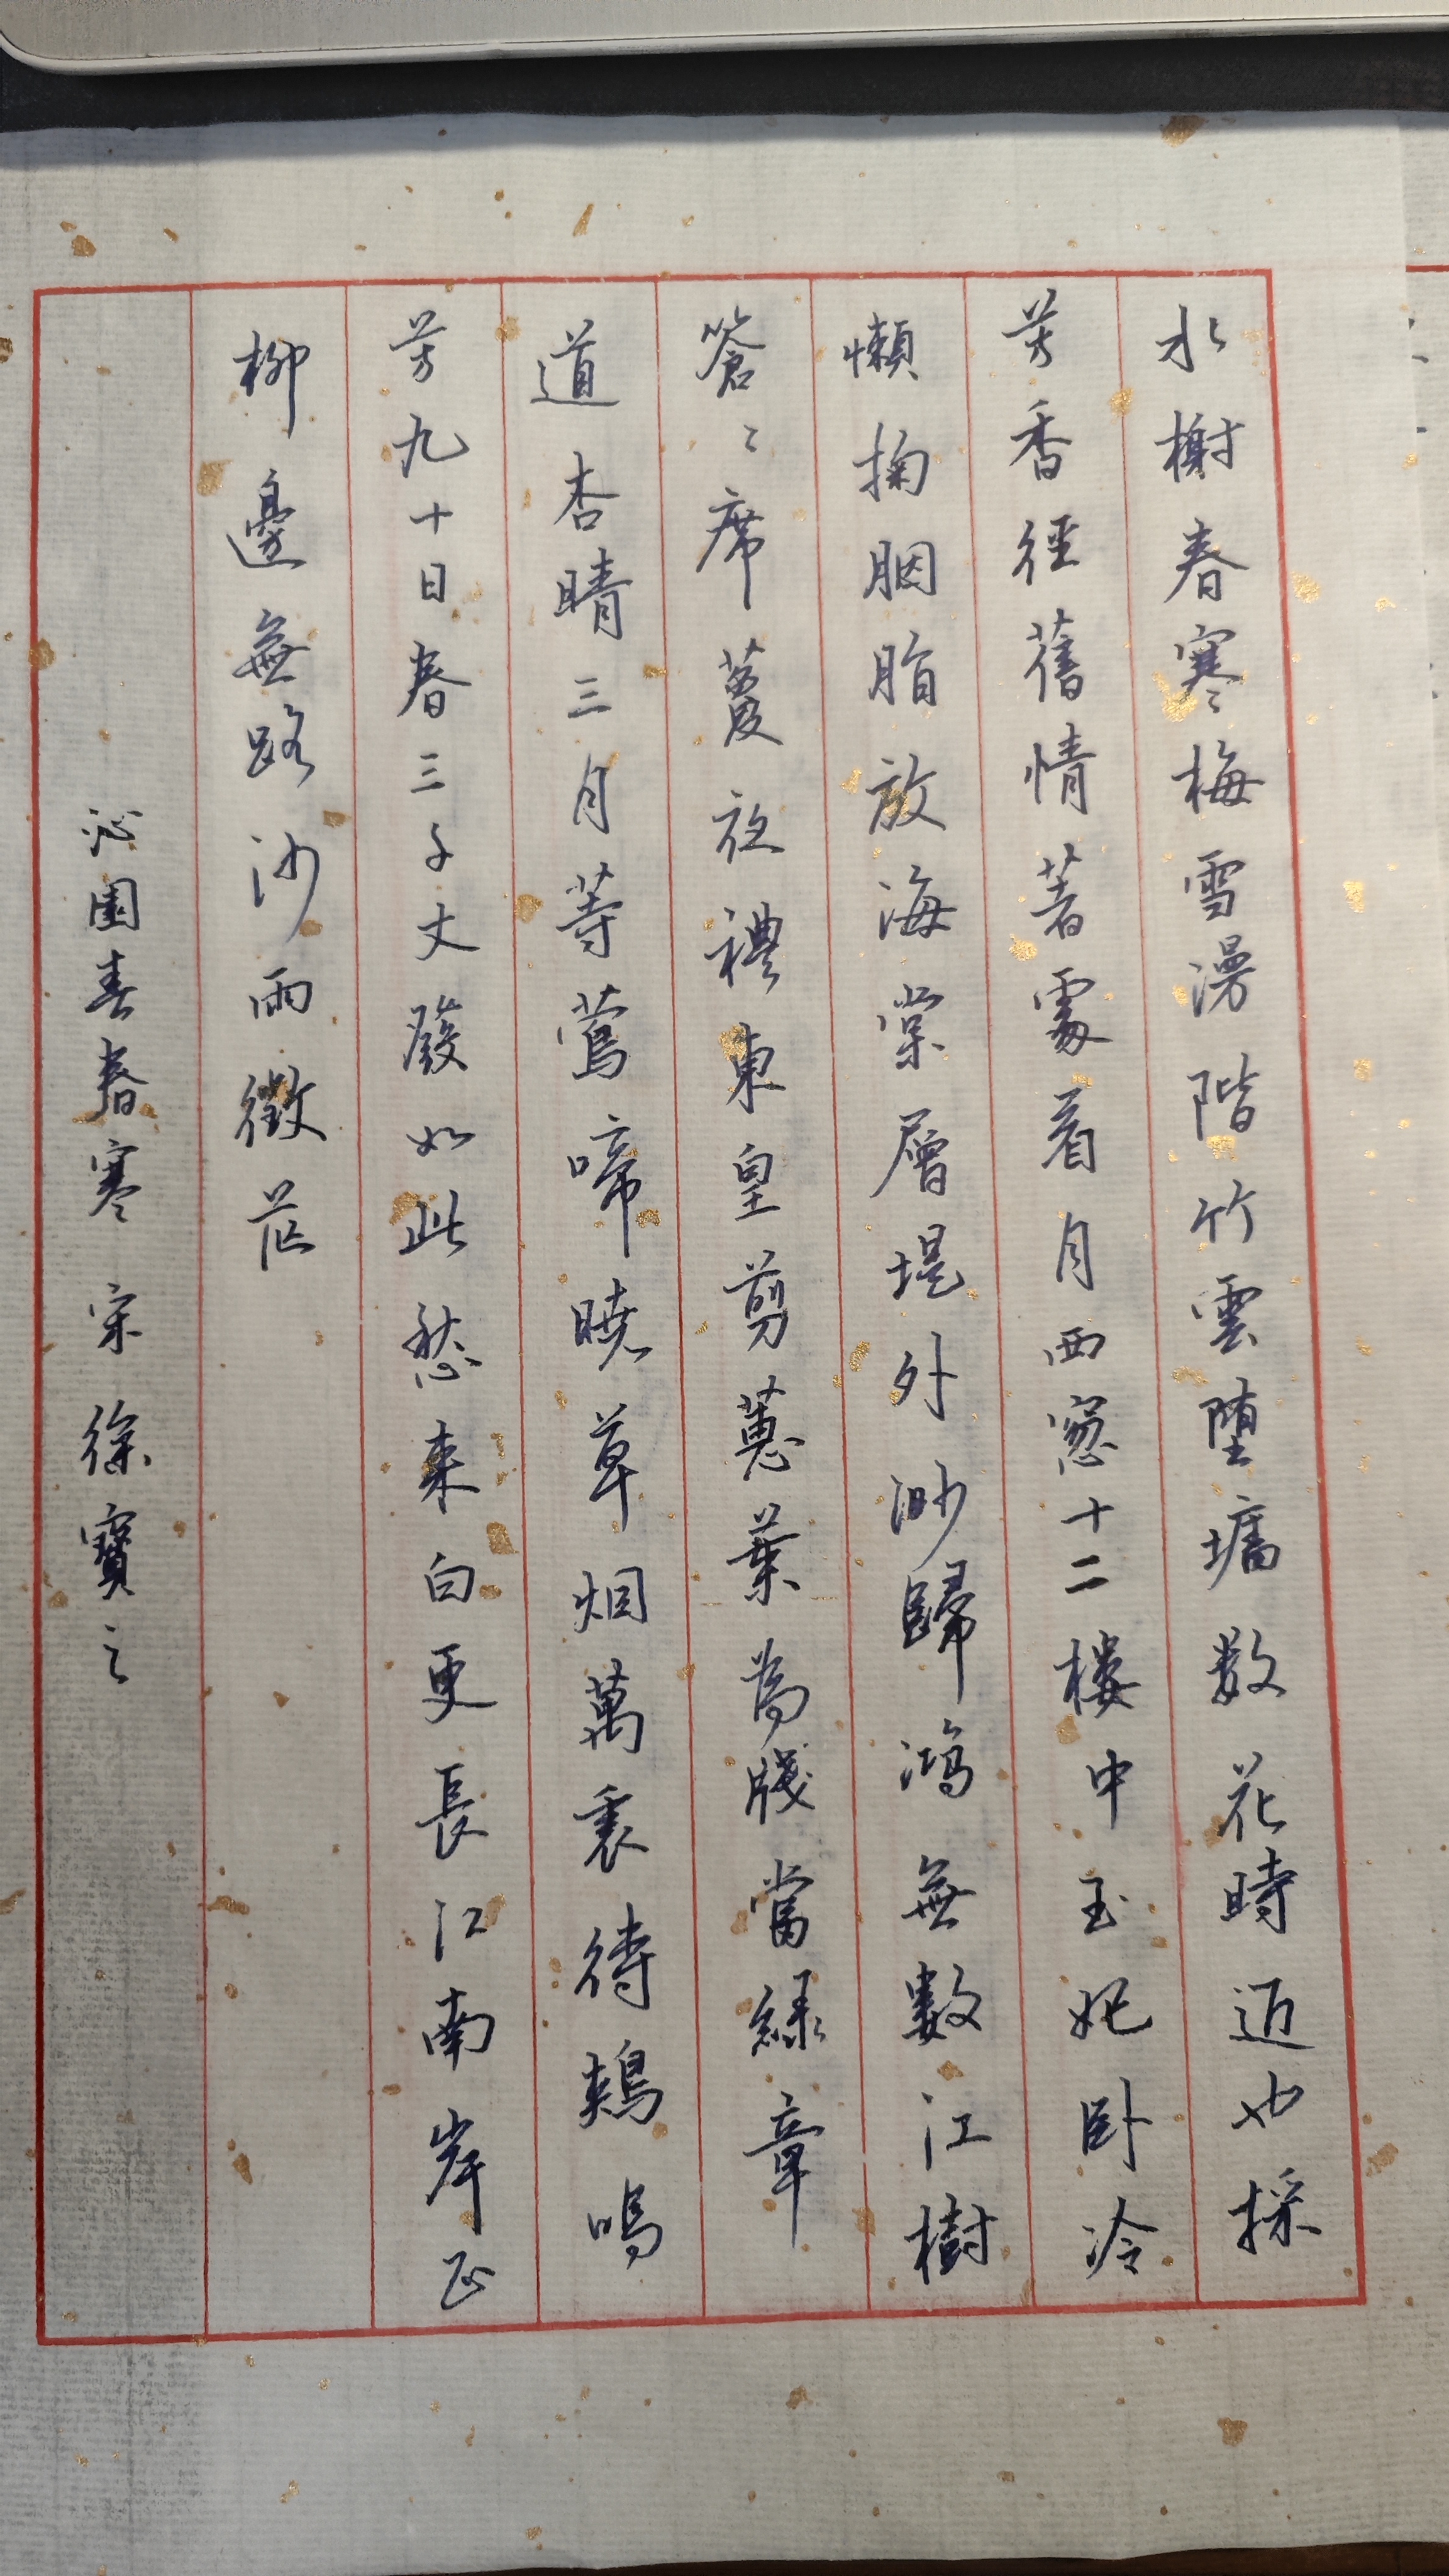 水榭春寒梅雪漫階竹雲堕墻数花時近也採
芳香徑舊情著處着月西窓十二樓中玉妃卧冷
懶掬胭脂放海棠層堤外渺歸鴻無數江樹
簷〻席蘐夜禮東皇剪蕙葉為牋當緑章
道杏晴三月等鶯啼曉草烟萬裏待鵊鳴
芳九十日春三千丈髮如此愁来白更長江南岸正
柳邊無路沙雨微茫
沁園春春寒 宋徐寶之